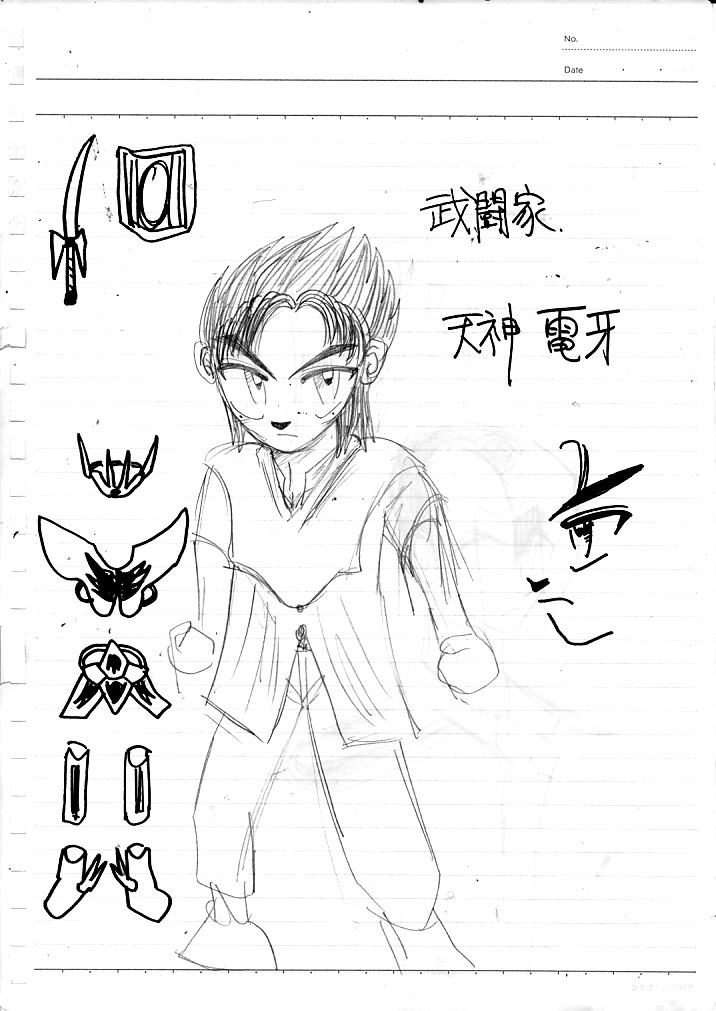 No.
Date
武闘家.
天神 電牙